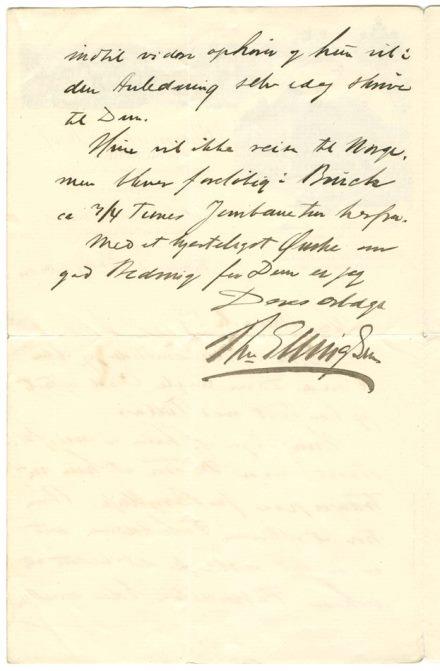 indtil videre ophører og hun vil i
den Anledning selv idag skrive
til Dem.
Hun vil ikke reise til Norge,
men bliver foreløbig i
ca 3/4 Times Jernbanetur herfra.
Med et hjerteligst Ønske om
god Bedring for Dem er jeg
Deres ærbødige